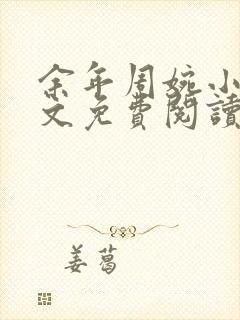 余年周婉小
文免費閱讀
姜葛